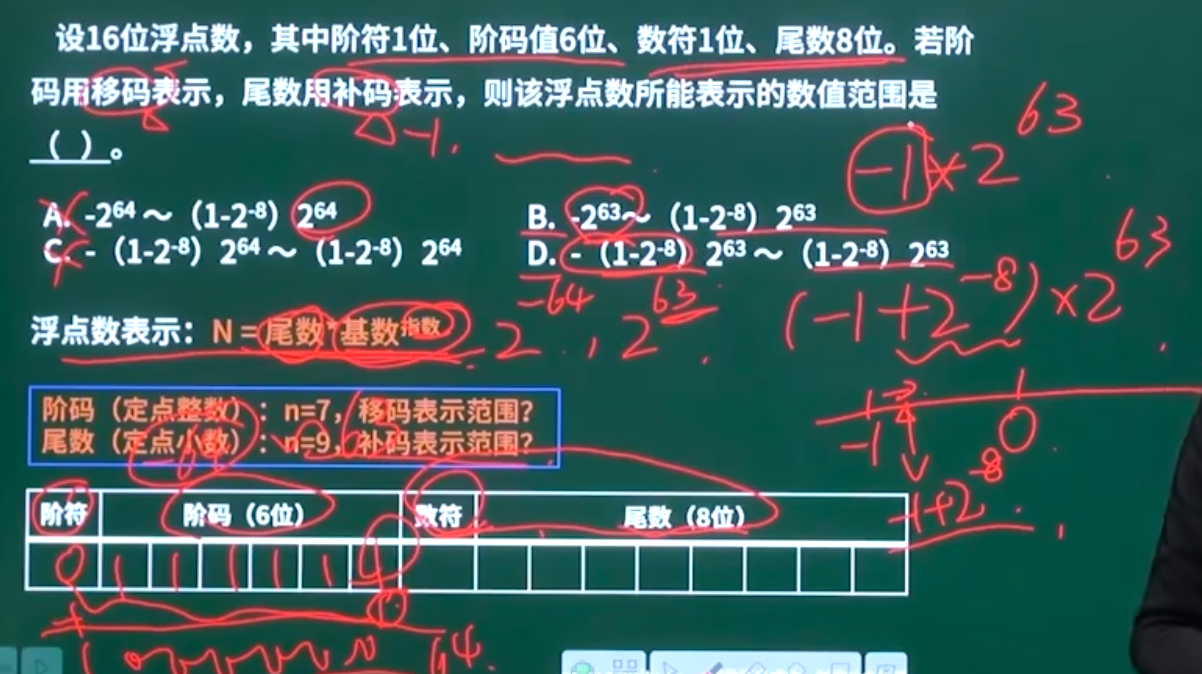 设16位浮点数，其中阶符1位、阶码值6位、数符1位、尾数8位。若阶
码用移码表示，尾数用补码表示，则该浮点数所能表示的数值范围是
（ ）。
-1.
-1×2⁶³
A. -2⁶⁴～（1-2⁻⁸）2⁶⁴
B. -2⁶³～（1-2⁻⁸）2⁶³
C. -（1-2⁻⁸）2⁶⁴～（1-2⁻⁸）2⁶⁴
D. -（1-2⁻⁸）2⁶³～（1-2⁻⁸）2⁶³
(-1+2⁻⁸)×2⁶³
浮点数表示：N = 尾数*基数指数
2⁻⁶⁴, 2⁶³
阶码（定点整数）：n=7，移码表示范围？
尾数（定点小数）：n=9，补码表示范围？
-1 0
-1+2⁻⁸
阶符 阶码（6位） 数符 尾数（8位）
0 1 1 1 1 1
64